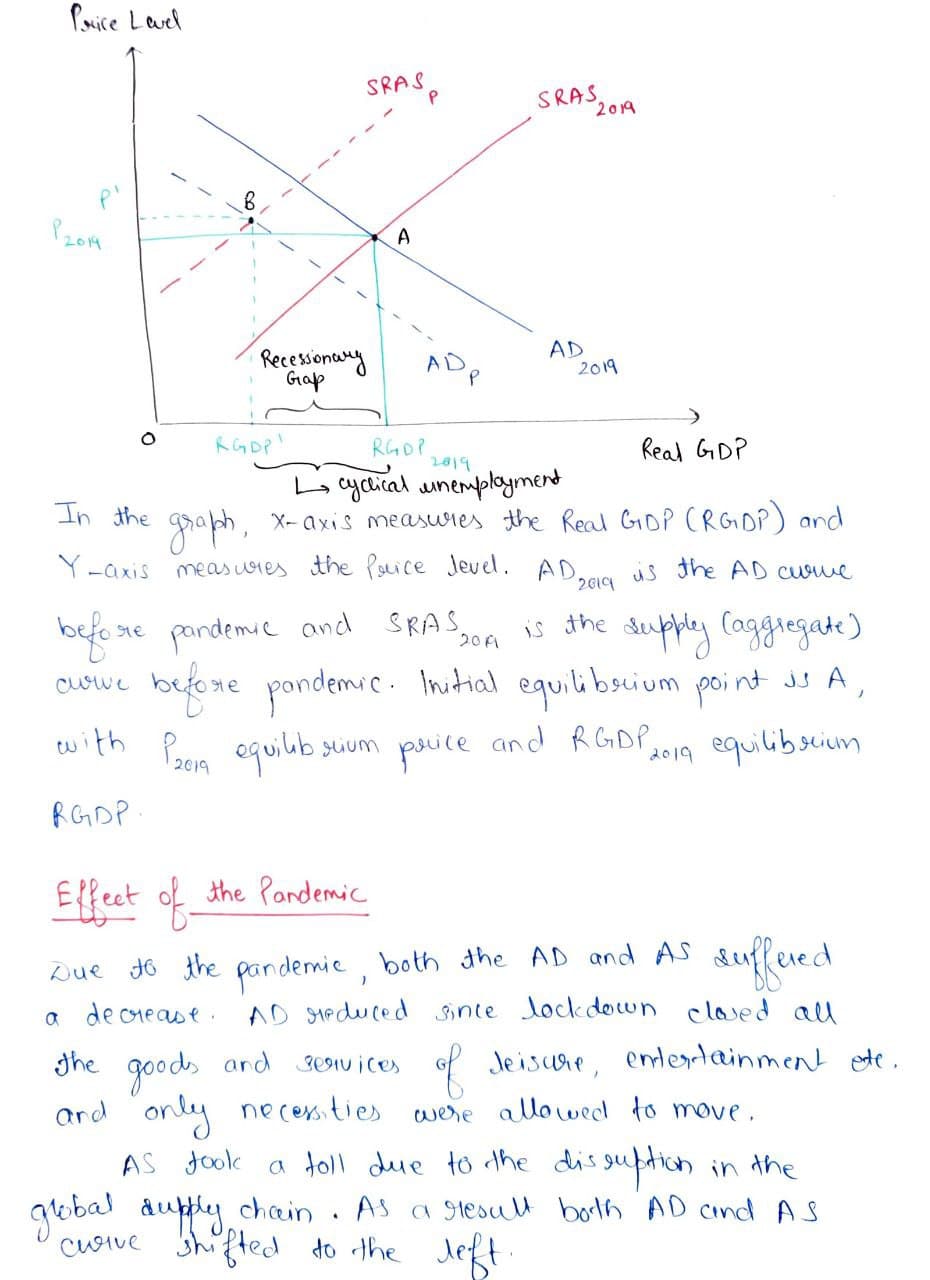 Price Level
SRAS P
SRAS 2019
B
P'
P 2019
A
Recessionary
Gap
AD P
AD 2019
O
RGDP'
RGDP 2019
Real GDP
↳ cyclical unemployment
In the graph, X-axis measures the Real GDP (RGDP) and
Y-axis measures the Price level. AD 2019 is the AD curve
before pandemic and SRAS 2019 is the supply (aggregate)
curve before pandemic. Initial equilibrium point is A,
with P 2019 equilibrium price and RGDP 2019 equilibrium
RGDP.
Effect of the Pandemic
Due to the pandemic, both the AD and AS suffered
a decrease. AD reduced since lockdown closed all
the goods and services of leisure, entertainment etc.
and only necessities were allowed to move.
AS took a toll due to the disruption in the
global supply chain. As a result both AD and AS
curve shifted to the left.